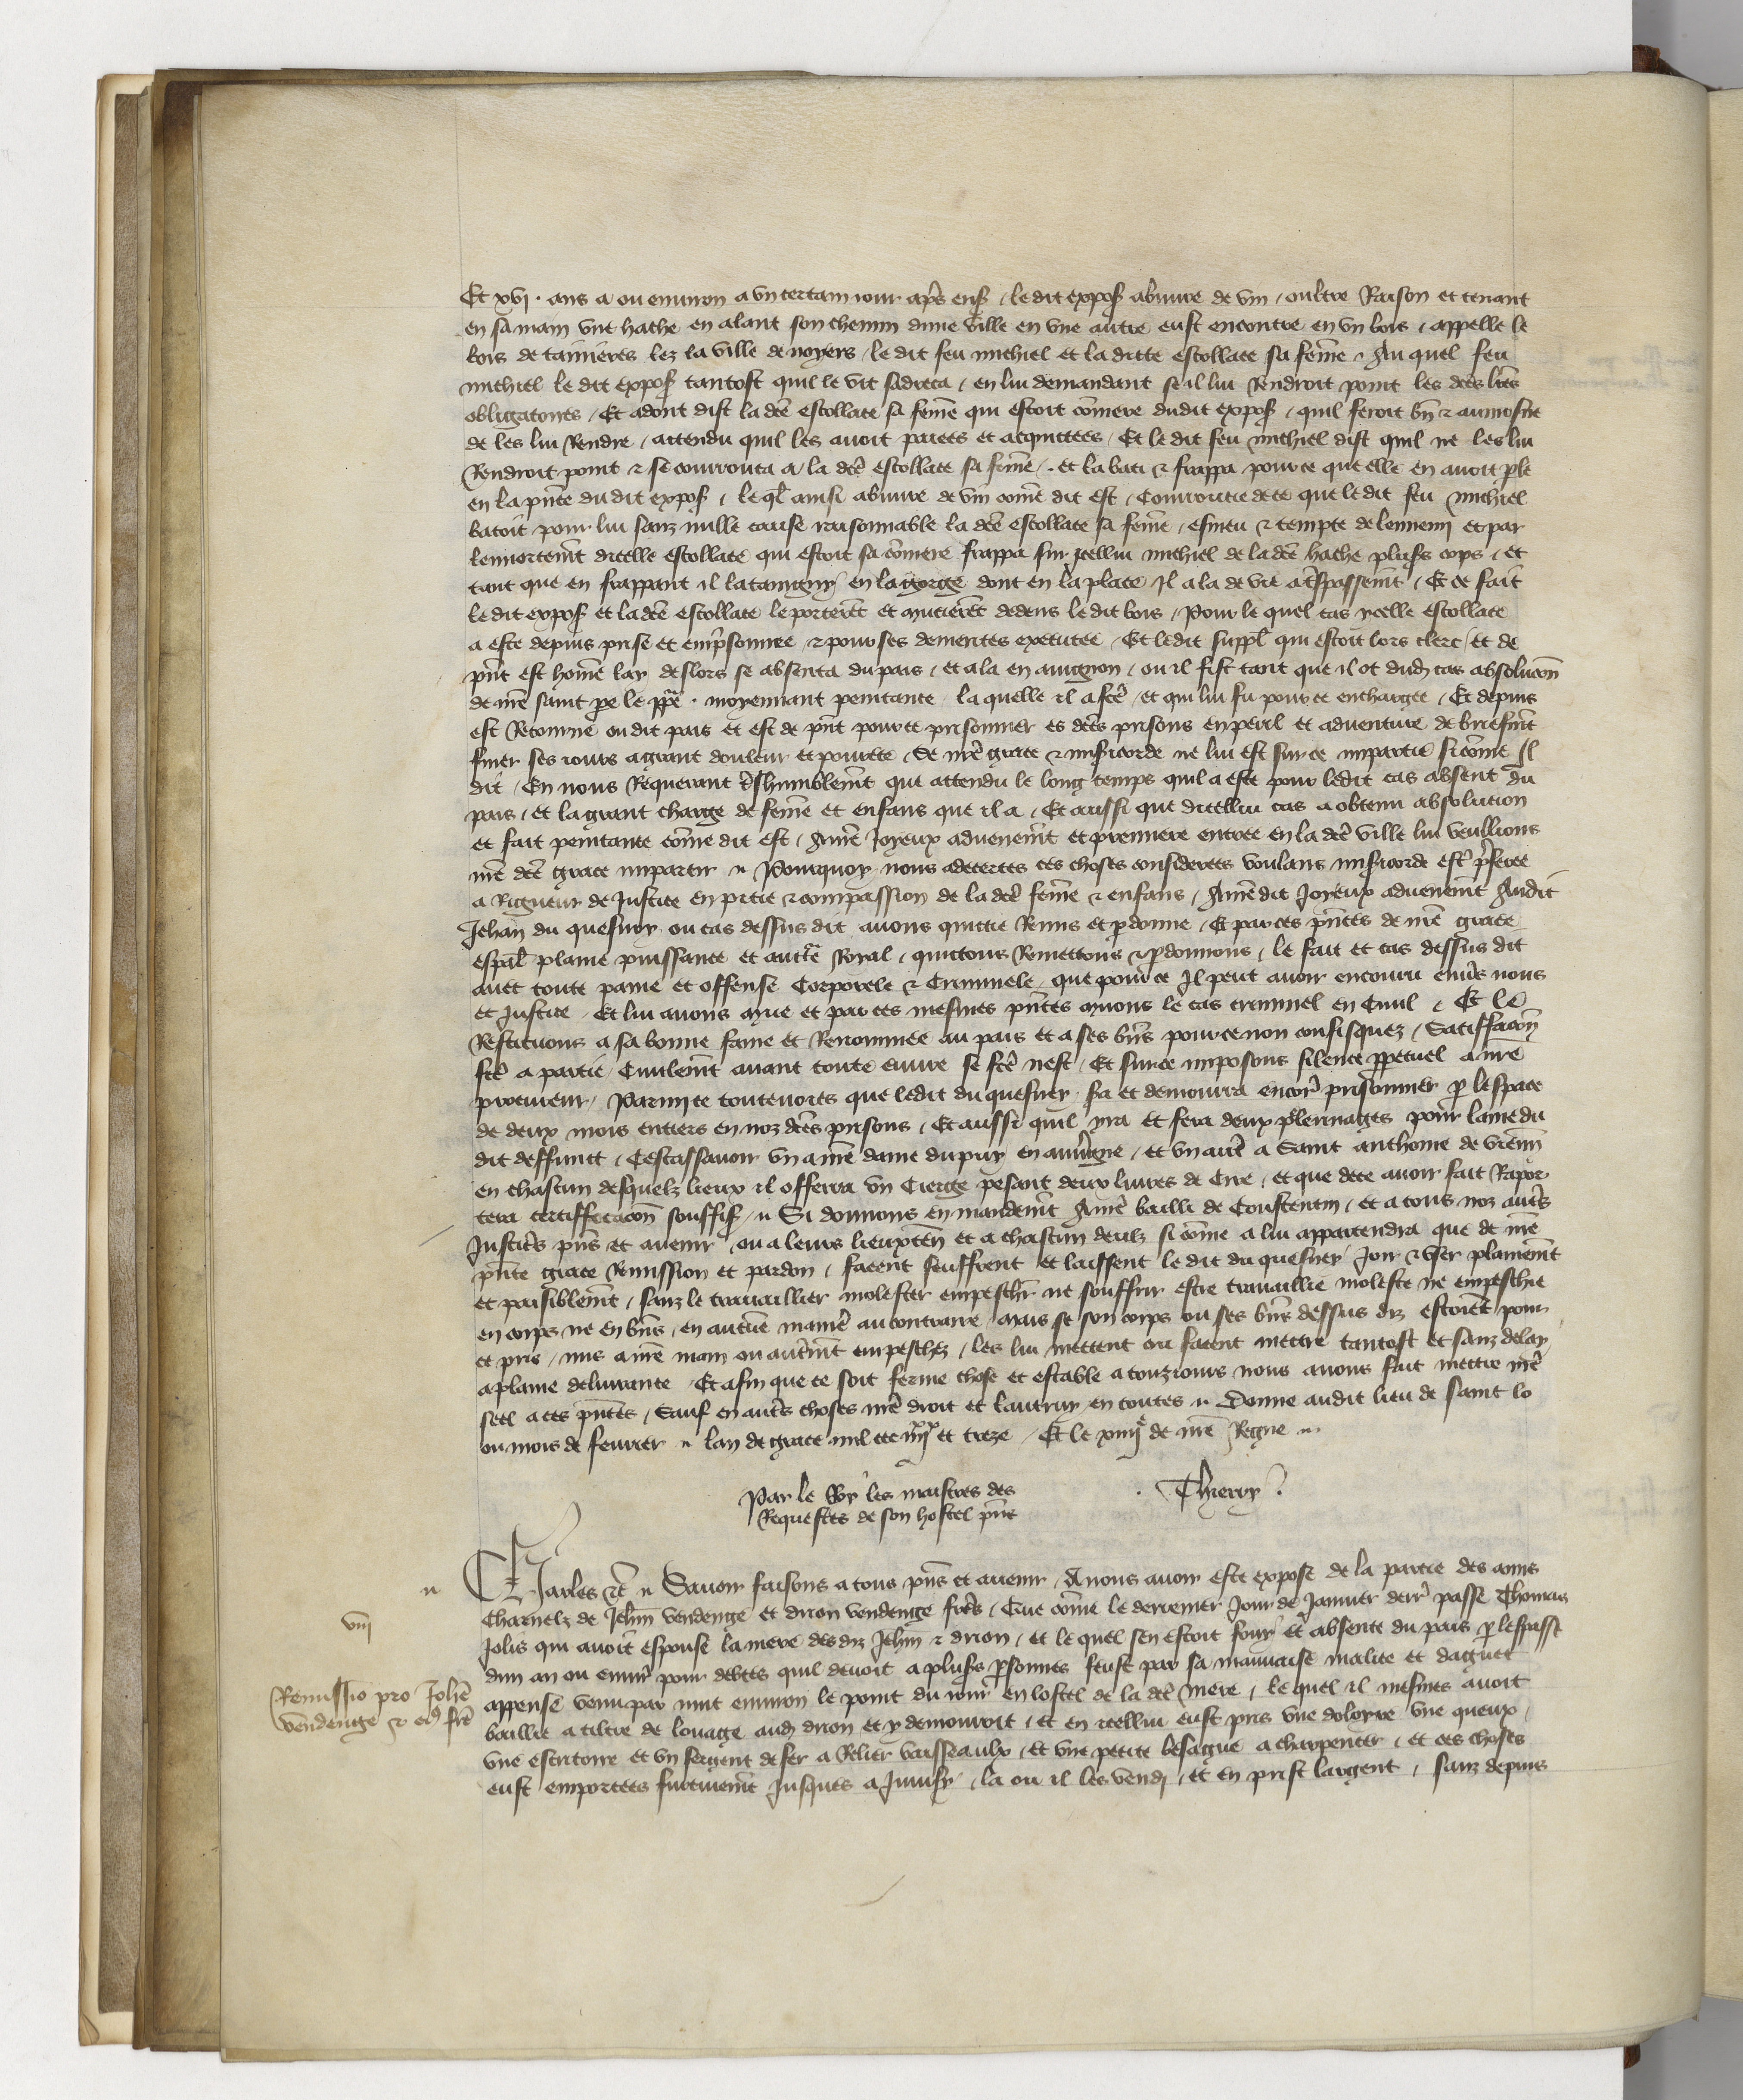 Et xvj. ans a ou environ a un certain jour apres ens. le dit expos. abuvre de vin oultre Raison et tenant
en sa main une hache en alant son chemin dune ville en une autre eust encontre en un bois appelle le
bois de tainieres lez la ville de noyers le dit feu michiel et la ditte escollate sa feme Au quel feu
michiel le dit expos. tantost quil le vit sadreca en lui demandant se il lui Rendroit point les dces lres
obligatoires Et adont dist la dce escollate sa feme qui estoit comere dudit expos. quil feroit bn & aumosne
de les lui Rendre attendu quil les avoit paiees et acquittees Et le dit feu michiel dist quil ne les lui
Rendroit point & se courrouca a la dce escollate sa feme et la bati & frappa pour ce que elle en avoit ple
en la pnce du dit expos. le ql ainsi abuvre de vin come dit est Courroucie de ce que le dit feu michiel
batoit pour lui sanz nulle cause raisonnable la dce escollate sa feme esmeu & tempte de lennemi et par
lennortemt dicelle escollate qui estoit sa comere frappa sur ycellui michiel de la dce hache plusrs cops et
tant que en frappant il lataingny en la gorge dont en la place Il ala de vie a trespassemt Et ce fait
le dit expos. et la dce escollate le porterent et mucierent dedens le dit bois Pour le quel cas ycelle escollate
a este depuis prise et emprisonnee & pour ses demerites executee Et ledit suppl. qui estoit lors clerc et de
pnt est home lay deslors se absenta du pais et ala en avignon ou il fist tant que il ot dud. cas absolucon
de nre saint pe le ppe moyennant penitance la quelle il a fce et qui lui fu pour ce enchargee Et depuis
est Retourne ou dit pais et est de pnt pour ce prisonnier es dces prisons en peril et adventure de briefmt
finer ses jours a grant douleur et povrete Se nre grace & misericorde ne lui est sur ce impartie si come Il
dit En nous Requerant tshumblemt que attendu le long temps quil a este pour ledit cas absent du
pais et la grant charge de feme et enfans que il a Et aussi que dicellui cas a obtenu absolution
et fait penitance come dit est A nre Joyeux advenemt et premiere entree en la dce ville lui veullions
nre dce grace impartir Pourquoy nous adecertes ces choses considerees voulans misericorde estre prferee
a Rigueur de Justice en pitie & compassion de la dce feme & enfans A nre dit Joyeux advenemt Audit
Jehan du quesnoy ou cas dessus dit avons quittie Remis et pdonne Et par ces pntes de nre grace
espal plaine puissance et aucte Royal quittons Remettons & pdonnons le fait et cas dessus dit
avec toute paine et offense Corporele & Criminele que pour ce Il peut avoir encouru envrs nous
et Justice Et lui avons mue et par ces mesmes pntes muons le cas criminel en Civil Et le
Restituons a sa bonne fame et Renommee au pais et a ses bns pour ce non confisquez Satiffacon
fce a partie Civilemt avant toute euvre se fce nest Et sur ce imposons silence ppetuel a nre
procureur Parmi ce toutevoies que ledit du quesney sa et demourra encore prisonnier p lespace
de deux mois entiers en noz dces prisons Et aussi quil yra et fera deux plerinages pour lame du
dit deffunct Cestassavoir un a nre dame du puy en auvrgne et un autre a Saint anthoine de vienn
en chascun desquelz lieux il offerra un Cierge pesant deux livres de Cire et que de ce avoir fait Rapor
tera certifficacon souffis. Si donnons en mandemt A nre bailli de Coustentin et a tous noz autres
Justicrs pns et avenir ou a leurs lieuxten et a chascun deulx si come a lui appartendra que de nre
pnte grace Remission et pardon facent seuffrent et laissent le dit du quesney Joir & user plainemt
et paisiblemt sanz le travaillier molester empeschr ne souffrir estre travaillie moleste ne empeschie
en corps ne en bns en aucune manre au contraire mais se son corps ou ses bns dessus diz estoient pour
ce pris mis a nre main ou autremt empeschez les lui mettent ou facent mettre tantost et sanz delay
a plaine delivrance Et afin que ce soit ferme chose et estable a touzjours nous avons fait mettre nre
seel a ces pntes Sauf en autrs choses nre droit et lautruy en toutes Donne audit lieu de saint lo
ou mois de fevrier lan de grace mil ccc iiijxx et treze Et le xiiije de nre Regne
Par le Roy les maistres des
Requestes de son hostel pns
Thierry
Charles &c Savoir faisons a tous pns et avenir A nous avoir este expose de la partie des amis
Charnelz de Jehan vendenge et drion vendenge frers Que come le derrenier Jour de Janvier derr passe Thomas
Jolis qui avoit espouse la mere des diz Jehan & drion et le quel sen estoit fouy et absente du pais p lespasse
dun an ou envir pour debtes quil devoit a plusrs psonnes feust par sa mauvaise malice et daguet
appense venu par nuit environ le point du jour en lostel de la dce mere le quel il mesmes avoit
baillie a tiltre de louage aud. drion et y demouroit et en icellui eust pris une doloyre une queux
une escritoire et un sergent de fer a Relier vaisseaulx et une petite besague a charpenter et ces choses
eust emportees furtivemt Jusques a Juvisy la ou il les vendi et en prist largent sanz depuis
viij
Remissio pro Johe
vendenge & ej fre